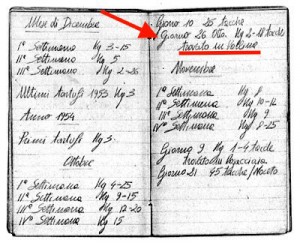 Mese di Dicembre
Iª Settimana Kg 3-15
IIª Settimana Kg 5
IIIª Settimana Kg 2-26
Ultimi Tartufi 1953 Kg 3
Anno 1954
Primi Tartufi Kg 3
Ottobre
Iª Settimana Kg 4-25
IIª Settimana Kg 9-15
IIIª Settimana Kg 17-20
IVª Settimana Kg 15
Giorno 10 25 tacche
Giorno 26 Otto. Kg 2-18 tacche
trovato in
Novembre
Iª Settimana Kg 8
IIª Settimana Kg 10-12
IIIª Settimana Kg 9
IVª Settimana Kg 8-25
Giorno 9 Kg 1-4 tacche
trovato in
Giorno 21 95 tacche